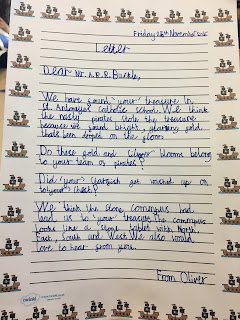 Friday 26th November
Letter
Dear Mr. A.R.R. Buckle,
We have found your treasure in
St. Antony's Catholic School. We think
the nasty pirates stole the treasure
because we found bright, gold
that's been on the floor.
Do these gold and silver belong
to your team of pirates?
Did your get washed up on
to your
We think the stone compus had
lead us to your treasure. The compus
looks like a stone tablet with North,
East, South and West. We also would
love to hear from you.
From Oliver
twinkl